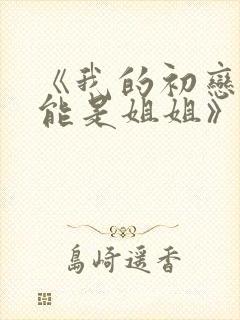 《我的初戀
能是姐姐》
島崎遥香